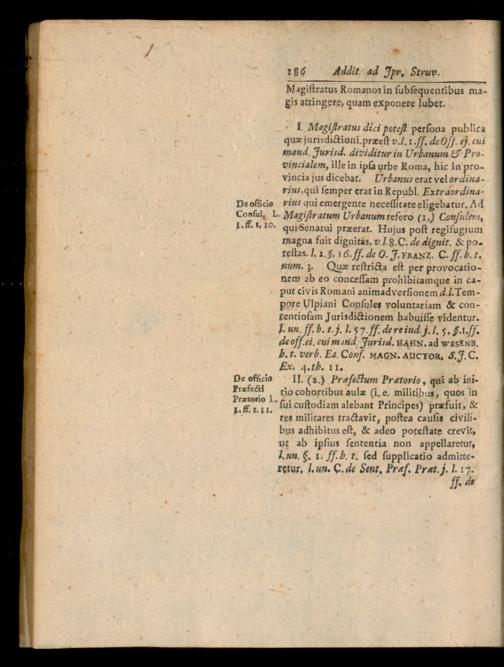 186 Addit. ad Jpr. Struv.
Magiſtratus Romanos in ſubſequentibus ma-
gis attingere, quam exponere lubet.
I. Magiſtratus dici poteſt perſona publica
quæ jurisdictioni præeſt v.l. 1. ff. de Off. ej. cui
mand. Jurisd. dividitur in Urbanum & Pro-
vincialem, ille in ipſa urbe Roma, hic in pro-
vincia jus dicebat. Urbanus erat vel ordina-
rius, qui ſemper erat in Republ. Extraordina-
De officio
Conſul. L.
1. ff. t. 10.
rius qui emergente neceſſitate eligebatur. Ad
Magiſtratum Urbanum refero (1.) Conſulem,
qui Senatui præerat. Hujus poſt regifugium
magna fuit dignitas, v l. 8. C. de dignit. & po-
teſtas. l. 2. §. 16. ff. de O. J. FRANZ. C. ff. h. t.
num. 3. Quæ reſtricta eſt per provocatio-
nem ab eo conceſſam prohibitamque in ca-
put civis Romani animadverſionem d. l. Tem-
pore Ulpiani Conſules voluntariam & con-
tentioſam Jurisdictionem habuiſſe videntur.
l. un. ff. h. t. j. l. 57. ff. de re jud j. l. 5. §. 1. ff.
de off. ei. cui mand. Jurisd. HAHN. ad WESENB.
h. t. verb. Ea. Conſ. MAGN. AUCTOR. S. J. C.
Ex. 4. th. 11.
De officio
Præfecti
Prætorio L.
1. ff. t. 11.
II. (2.) Præfectum Prætorio, qui ab ini-
tio cohortibus aulæ (i. e. militibus, quos in
ſui cuſtodiam alebant Principes) præfuit, &
res militares tractavit, poſtea cauſis civili-
bus adhibitus eſt, & adeo poteſtate crevit,
ut ab ipſius ſententia non appellaretur,
l. un. §. 1. ff. h. t. ſed ſupplicatio admitte-
retur, l. un. C. de Sent. Præf. Præt. j. l. 17.
ff. de